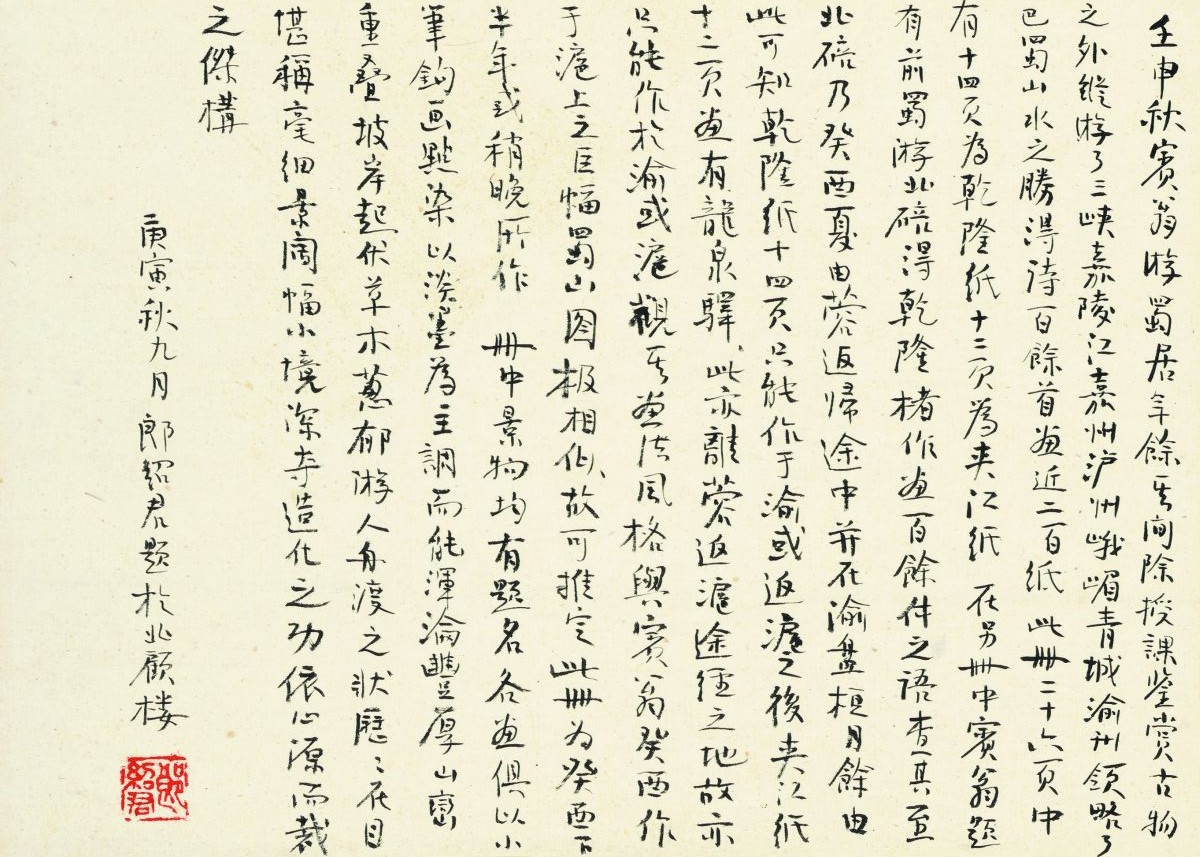 壬申秋賓翁游蜀居年餘其间除授課鉴赏古物
之外縱游了三峡嘉陵江嘉州泸州峨嵋青城渝州领略了
巴蜀山水之勝得诗百餘首画近二百纸此冊二十六页中
有十四页為乾隆纸十二页為夹江纸在另冊中賓翁题
有前蜀游北碚得乾隆楮作画百餘件之语查其至
北碚乃癸酉夏由蓉返歸途中并在渝盘桓月餘由
此可知乾隆纸十四页只能作于渝或返滬之後夹江纸
十二页画有龍泉驛、此亦離蓉返滬途徑之地故亦
只能作於渝或滬觀其画法風格與賓翁癸酉作
于滬上之巨幅蜀山图极相似、故可推定此冊为癸酉下
半年或稍晚所作冊中景物均有题名各画俱以小
筆鉤画點染以淡墨為主調而能渾淪豐厚山巒
重疊坡岸起伏草木蔥郁游人舟渡之狀歷〻在目
堪稱毫细景阔幅小境深夺造化之功依心源而裁
之傑構
庚寅秋九月郎绍君题於北顧楼
郎绍君